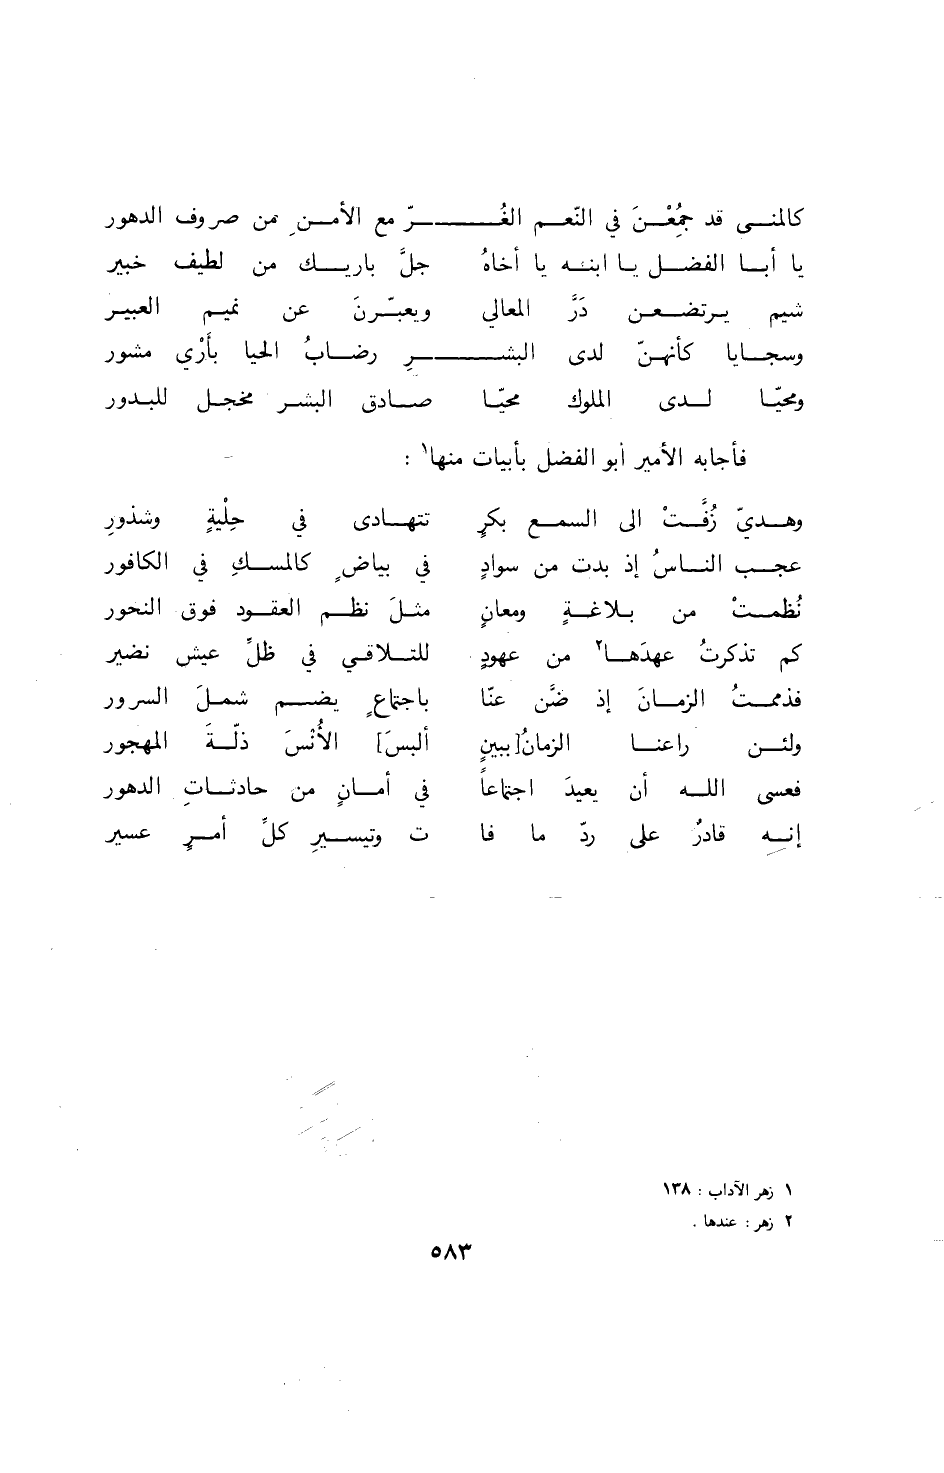 كالمنى قد جُمِّعْنَ في النّعم الغُرّ مع الأمن من صروف الدهور
يا أبا الفضل يا ابنه يا أخاهُ جلَّ باريك من لطيف خبير
شيم يرتضعن دَرَّ المعالي ويعبّرنَ عن نميم العبير
وسجايا كأنهنّ لدى البشرِ رضابُ الحيا بأَرْي مشور
ومحيّا لدى الملوك محيّا صادق البشر مخجل للبدور
فأجابه الأمير أبو الفضل بأبيات منها١ :
وهديّ زُفَّتْ الى السمع بكرٍ تتهادى في حِلْيةٍ وشذورِ
عجب الناسُ إذ بدت من سوادٍ في بياضٍ كالمسكِ في الكافور
نُظمتْ من بلاغةٍ ومعانٍ مثلَ نظم العقود فوق النحور
كم تذكرتُ عهدَها٢ من عهودٍ للتلاقي في ظلِّ عيش نضير
فذممتُ الزمانَ إذ ضنَّ عنّا باجتماعٍ يضم شملَ السرور
ولئن راعنا الزمانُ [ببينٍ ألبسَ] الأُنْسَ ذلّةَ المهجور
فعسى الله أن يعيدَ اجتماعاً في أمانٍ من حادثاتِ الدهور
إنه قادرٌ على ردّ ما فات وتيسيرِ كلِّ أمرٍ عسير
١ زهر الآداب : ١٣٨
٢ زهر : عندها .
٥٨٣